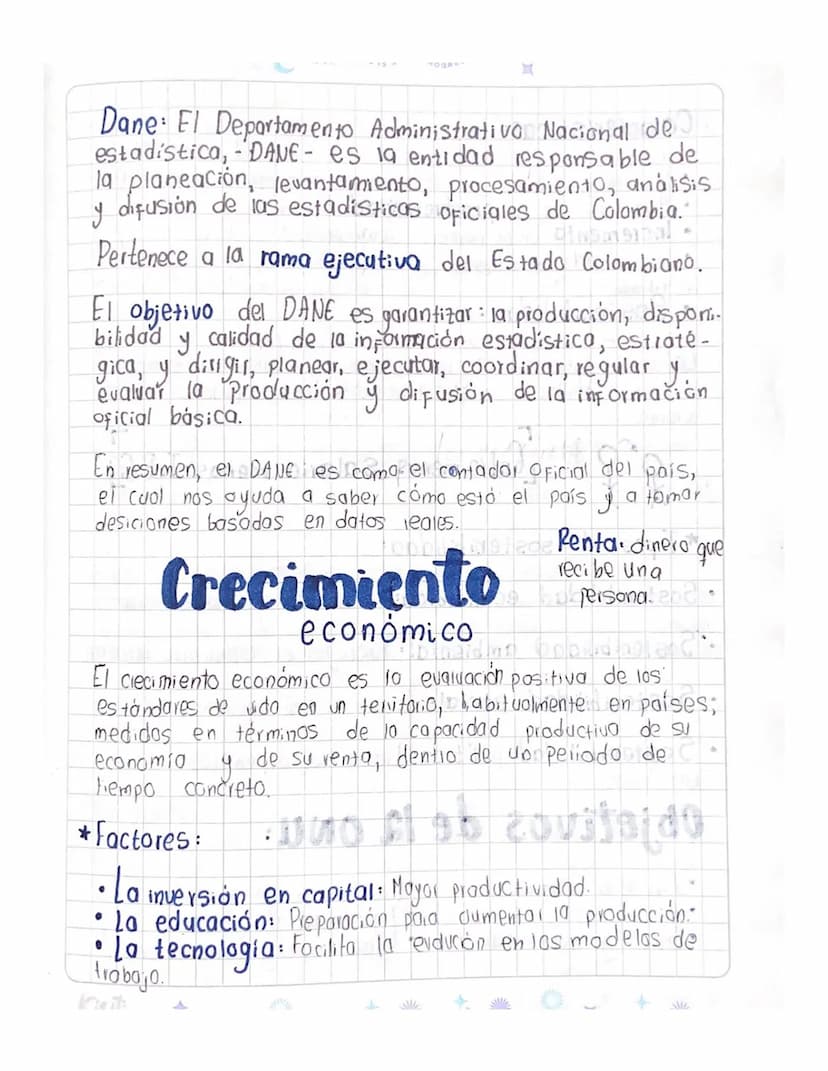 Dane: El Departamento Administrativo Nacional de
estadística, - DANE - es la entidad responsable de
la planeación, levantamiento, procesamiento, análisis
y difusión de las estadísticas oficiales de Colombia.
Pertenece a la rama ejecutiva del Estado Colombiano.
El objetivo del DANE es garantizar: la producción, disponi-
bilidad y calidad de la información estadística, estraté-
gica, y dirigir, planear, ejecutar, coordinar, regular y
evaluar la Producción y difusión de la información
oficial básica.
En resumen, el DANE es como el contador oficial del país,
el cual nos ayuda a saber cómo está el país y a tomar
desiciones basadas en datos reales.
Renta: dinero que
recibe una
persona.
Crecimiento
económico
El crecimiento económico es la evaluación positiva de los
estándares de vida en un territorio, habitualmente en países;
medidas en términos de la capacidad productiva de su
economía y de su renta, dentro de un periodo de
tiempo concreto.
*Factores:
• La inversión en capital: Mayor productividad.
• La educación: Preparación para aumentar la producción.
• La tecnología: Facilita la en los modelos de
trabajo.